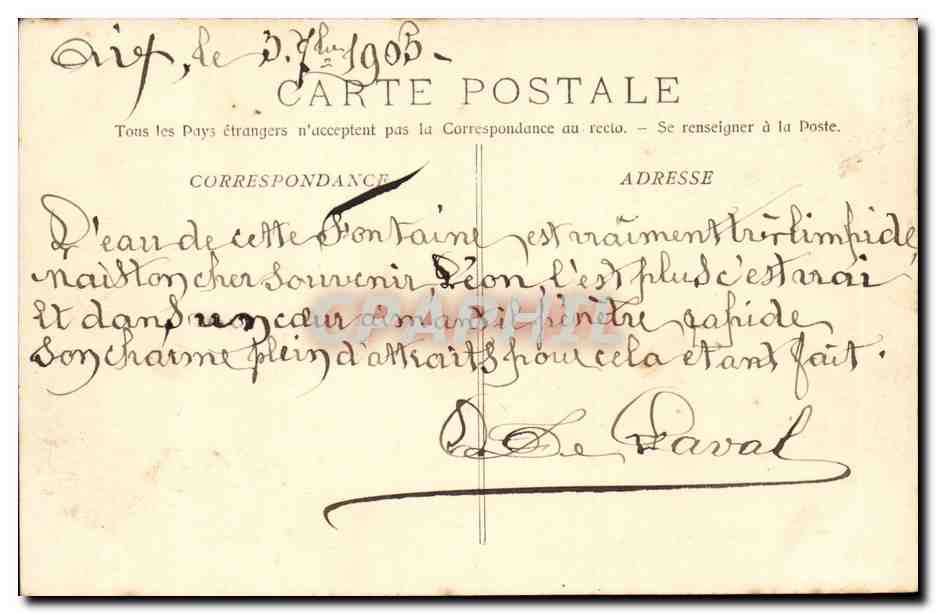 le 3 7bre 1905 -
CARTE POSTALE
Tous les Pays étrangers n'acceptent pas la Correspondance au recto. - Se renseigner à la Poste.
CORRESPONDANCE
ADRESSE
L'eau de cette Fontaine est vraiment très limpide
Mais ton cher souvenir, Léon, l'est plus c'est vrai
Et dans mon cœur aimant il pénètre rapide
Son charme plein d'attraits pour cela étant fait.
De Laval
GRAPHIL